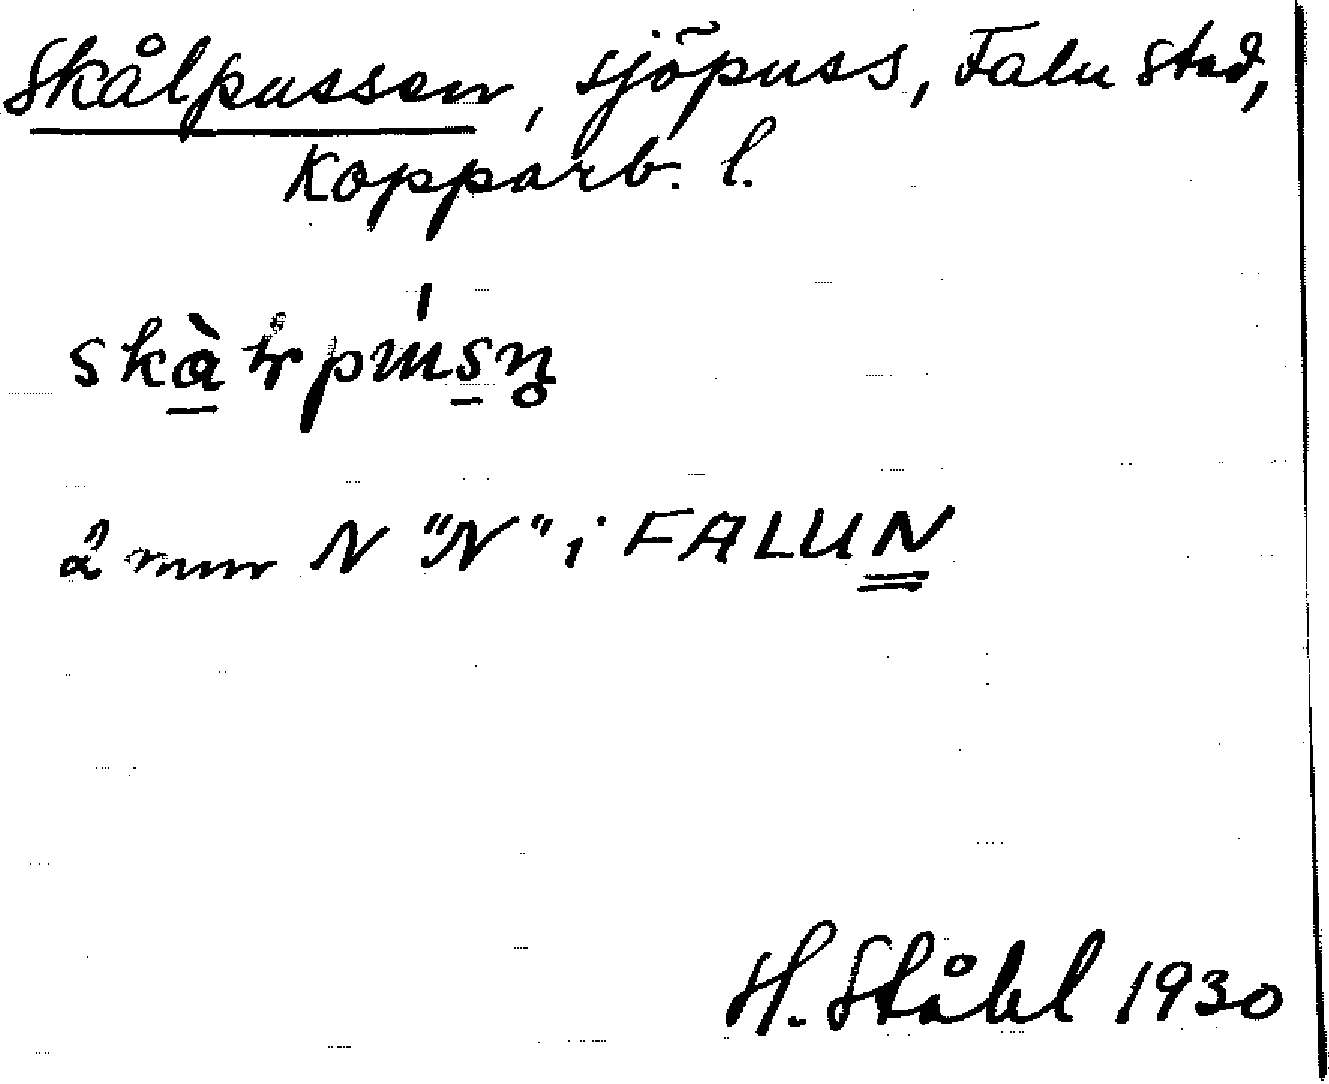 Skålpussen, sjöpuss, Falu stad,
Kopparb. l.
2 mm N "N" i FALUN
H. Ståhl 1930